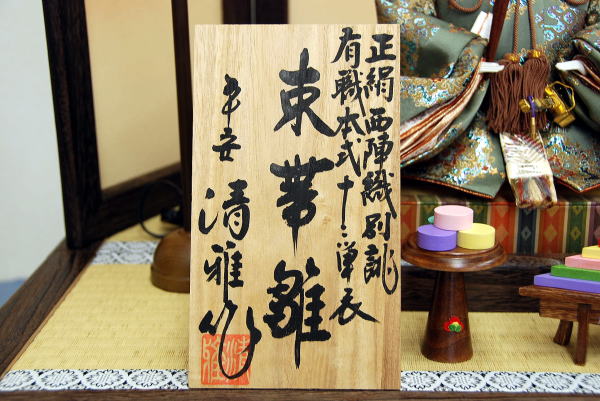 正絹西陣織別誂
有職本式十二単衣
束帯雛
平安
清雅作